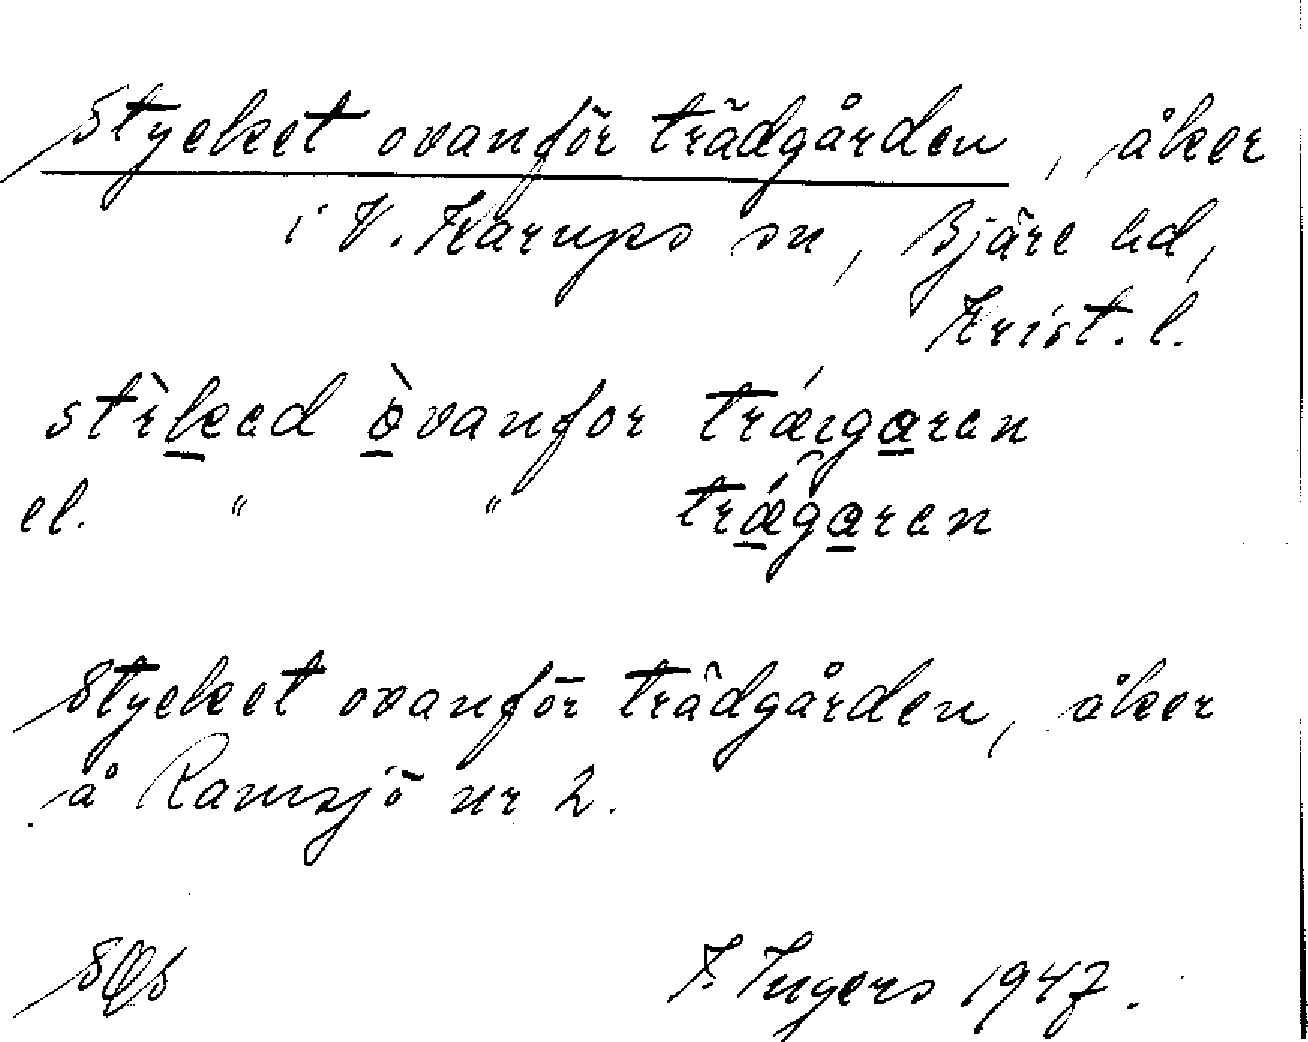 Stycket ovanför trädgården, åker
i V. Karups sn, Bjäre hd,
Krist. l.
stìked òvanfor tráigaren
el. " " trǽgaren
Stycket ovanför trädgården, åker
å Ramsjö nr 2.
I. Ingers 1947.